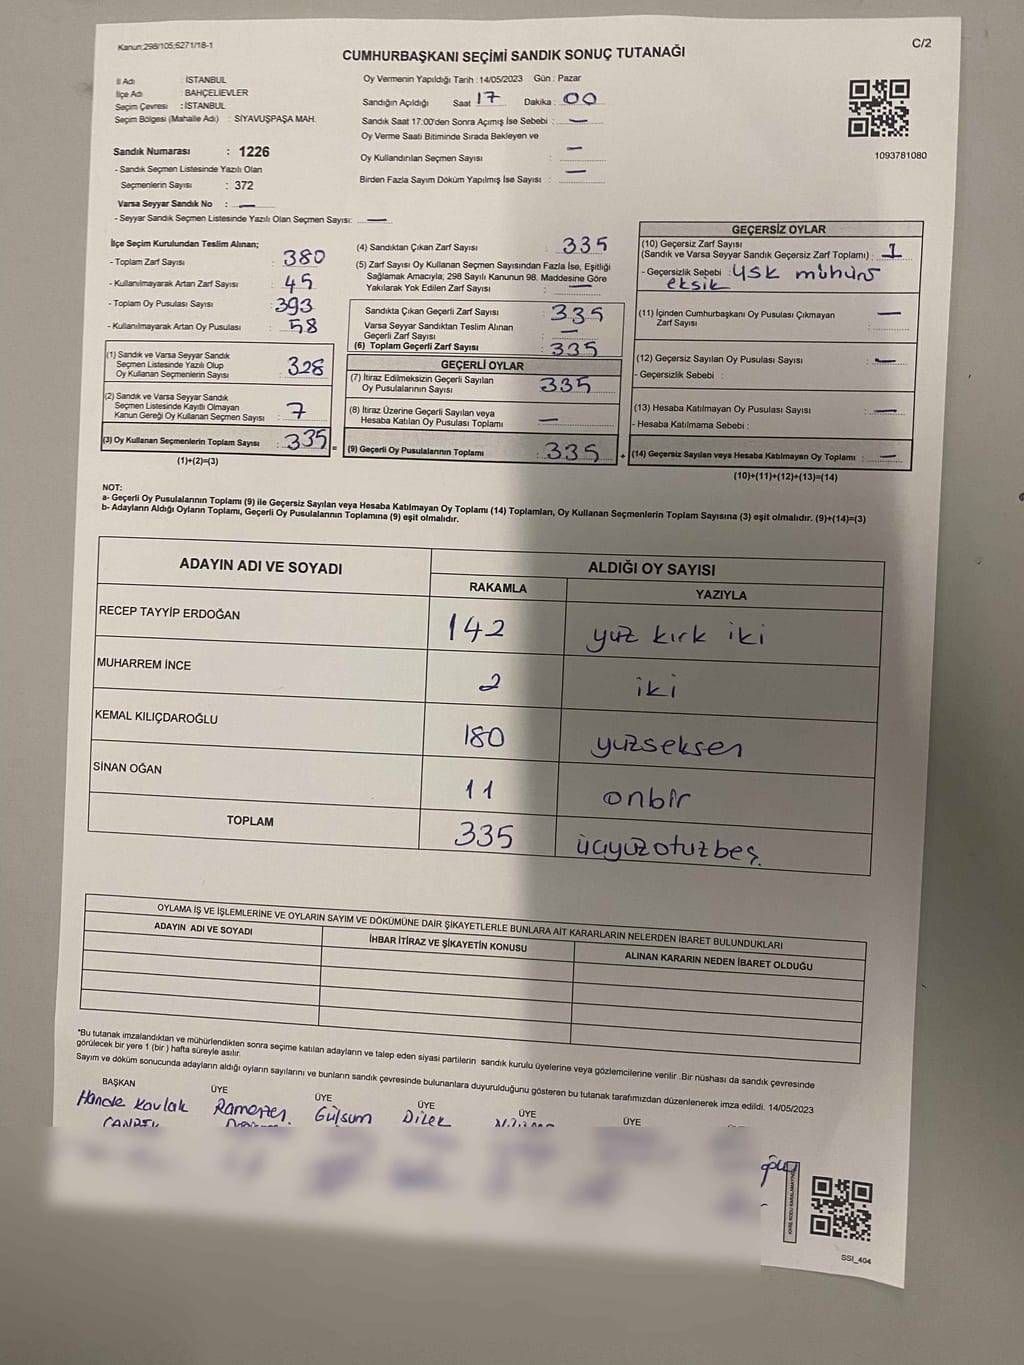 Kanun:298/105;5271/18-1
C/2
CUMHURBAŞKANI SEÇİMİ SANDIK SONUÇ TUTANAĞI
İl Adı : İSTANBUL
İlçe Adı : BAHÇELİEVLER
Seçim Çevresi : İSTANBUL
Seçim Bölgesi (Mahalle Adı) : SİYAVUŞPAŞA MAH.
Sandık Numarası : 1226
- Sandık Seçmen Listesinde Yazılı Olan
Seçmenlerin Sayısı : 372
Varsa Seyyar Sandık No : —
- Seyyar Sandık Seçmen Listesinde Yazılı Olan Seçmen Sayısı: —
Oy Vermenin Yapıldığı Tarih : 14/05/2023 Gün : Pazar
Sandığın Açıldığı Saat 17 Dakika : 00
Sandık Saat 17:00'den Sonra Açımış İse Sebebi : —
Oy Verme Saati Bitiminde Sırada Bekleyen ve
Oy Kullandırılan Seçmen Sayısı : —
Birden Fazla Sayım Döküm Yapılmış İse Sayısı : —
1093781080
İlçe Seçim Kurulundan Teslim Alınan;
- Toplam Zarf Sayısı : 380
- Kullanılmayarak Artan Zarf Sayısı : 45
- Toplam Oy Pusulası Sayısı : 393
- Kullanılmayarak Artan Oy Pusulası : 58
(1) Sandık ve Varsa Seyyar Sandık
Seçmen Listesinde Yazılı Olup
Oy Kullanan Seçmenlerin Sayısı : 328
(2) Sandık ve Varsa Seyyar Sandık
Seçmen Listesinde Kayıtlı Olmayan
Kanun Gereği Oy Kullanan Seçmen Sayısı : 7
(3) Oy Kullanan Seçmenlerin Toplam Sayısı : 335 =
(1)+(2)=(3)
(4) Sandıktan Çıkan Zarf Sayısı : 335
(5) Zarf Sayısı Oy Kullanan Seçmen Sayısından Fazla İse, Eşitliği
Sağlamak Amacıyla; 298 Sayılı Kanunun 98. Maddesine Göre
Yakılarak Yok Edilen Zarf Sayısı : —
Sandıkta Çıkan Geçerli Zarf Sayısı : 335
Varsa Seyyar Sandıktan Teslim Alınan
Geçerli Zarf Sayısı : —
(6) Toplam Geçerli Zarf Sayısı : 335
GEÇERLİ OYLAR
(7) İtiraz Edilmeksizin Geçerli Sayılan
Oy Pusulalarının Sayısı : 335
(8) İtiraz Üzerine Geçerli Sayılan veya
Hesaba Katılan Oy Pusulası Toplamı : —
(9) Geçerli Oy Pusulalarının Toplamı : 335 +
GEÇERSİZ OYLAR
(10) Geçersiz Zarf Sayısı
(Sandık ve Varsa Seyyar Sandık Geçersiz Zarf Toplamı) : 1
- Geçersizlik Sebebi : YSK mührü
eksik
(11) İçinden Cumhurbaşkanı Oy Pusulası Çıkmayan
Zarf Sayısı : —
(12) Geçersiz Sayılan Oy Pusulası Sayısı : —
- Geçersizlik Sebebi :
(13) Hesaba Katılmayan Oy Pusulası Sayısı : —
- Hesaba Katılmama Sebebi :
(14) Geçersiz Sayılan veya Hesaba Katılmayan Oy Toplamı : —
(10)+(11)+(12)+(13)=(14)
NOT:
a- Geçerli Oy Pusulalarının Toplamı (9) ile Geçersiz Sayılan veya Hesaba Katılmayan Oy Toplamı (14) Toplamları, Oy Kullanan Seçmenlerin Toplam Sayısına (3) eşit olmalıdır. (9)+(14)=(3)
b- Adayların Aldığı Oyların Toplamı, Geçerli Oy Pusulalarının Toplamına (9) eşit olmalıdır.
ADAYIN ADI VE SOYADI
ALDIĞI OY SAYISI
RAKAMLA YAZIYLA
RECEP TAYYİP ERDOĞAN 142 yüz kırk iki
MUHARREM İNCE 2 iki
KEMAL KILIÇDAROĞLU 180 yüzseksen
SİNAN OĞAN 11 onbir
TOPLAM 335 üçyüzotuzbeş.
OYLAMA İŞ VE İŞLEMLERİNE VE OYLARIN SAYIM VE DÖKÜMÜNE DAİR ŞİKAYETLERLE BUNLARA AİT KARARLARIN NELERDEN İBARET BULUNDUKLARI
ADAYIN ADI VE SOYADI İHBAR İTİRAZ VE ŞİKAYETİN KONUSU ALINAN KARARIN NEDEN İBARET OLDUĞU
*Bu tutanak imzalandıktan ve mühürlendikten sonra seçime katılan adayların ve talep eden siyasi partilerin sandık kurulu üyelerine veya gözlemcilerine verilir .Bir nüshası da sandık çevresinde
görülecek bir yere 1 (bir ) hafta süreyle asılır.
Sayım ve döküm sonucunda adayların aldığı oyların sayılarını ve bunların sandık çevresinde bulunanlara duyurulduğunu gösteren bu tutanak tarafımızdan düzenlenerek imza edildi. 14/05/2023
BAŞKAN ÜYE ÜYE ÜYE ÜYE ÜYE
Hande Kavlak Ramazan Gülsüm Dilek
SSI_404